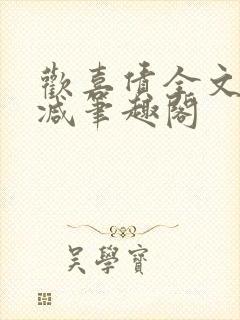 歡喜債全文
减筆趣閣
吳學寶